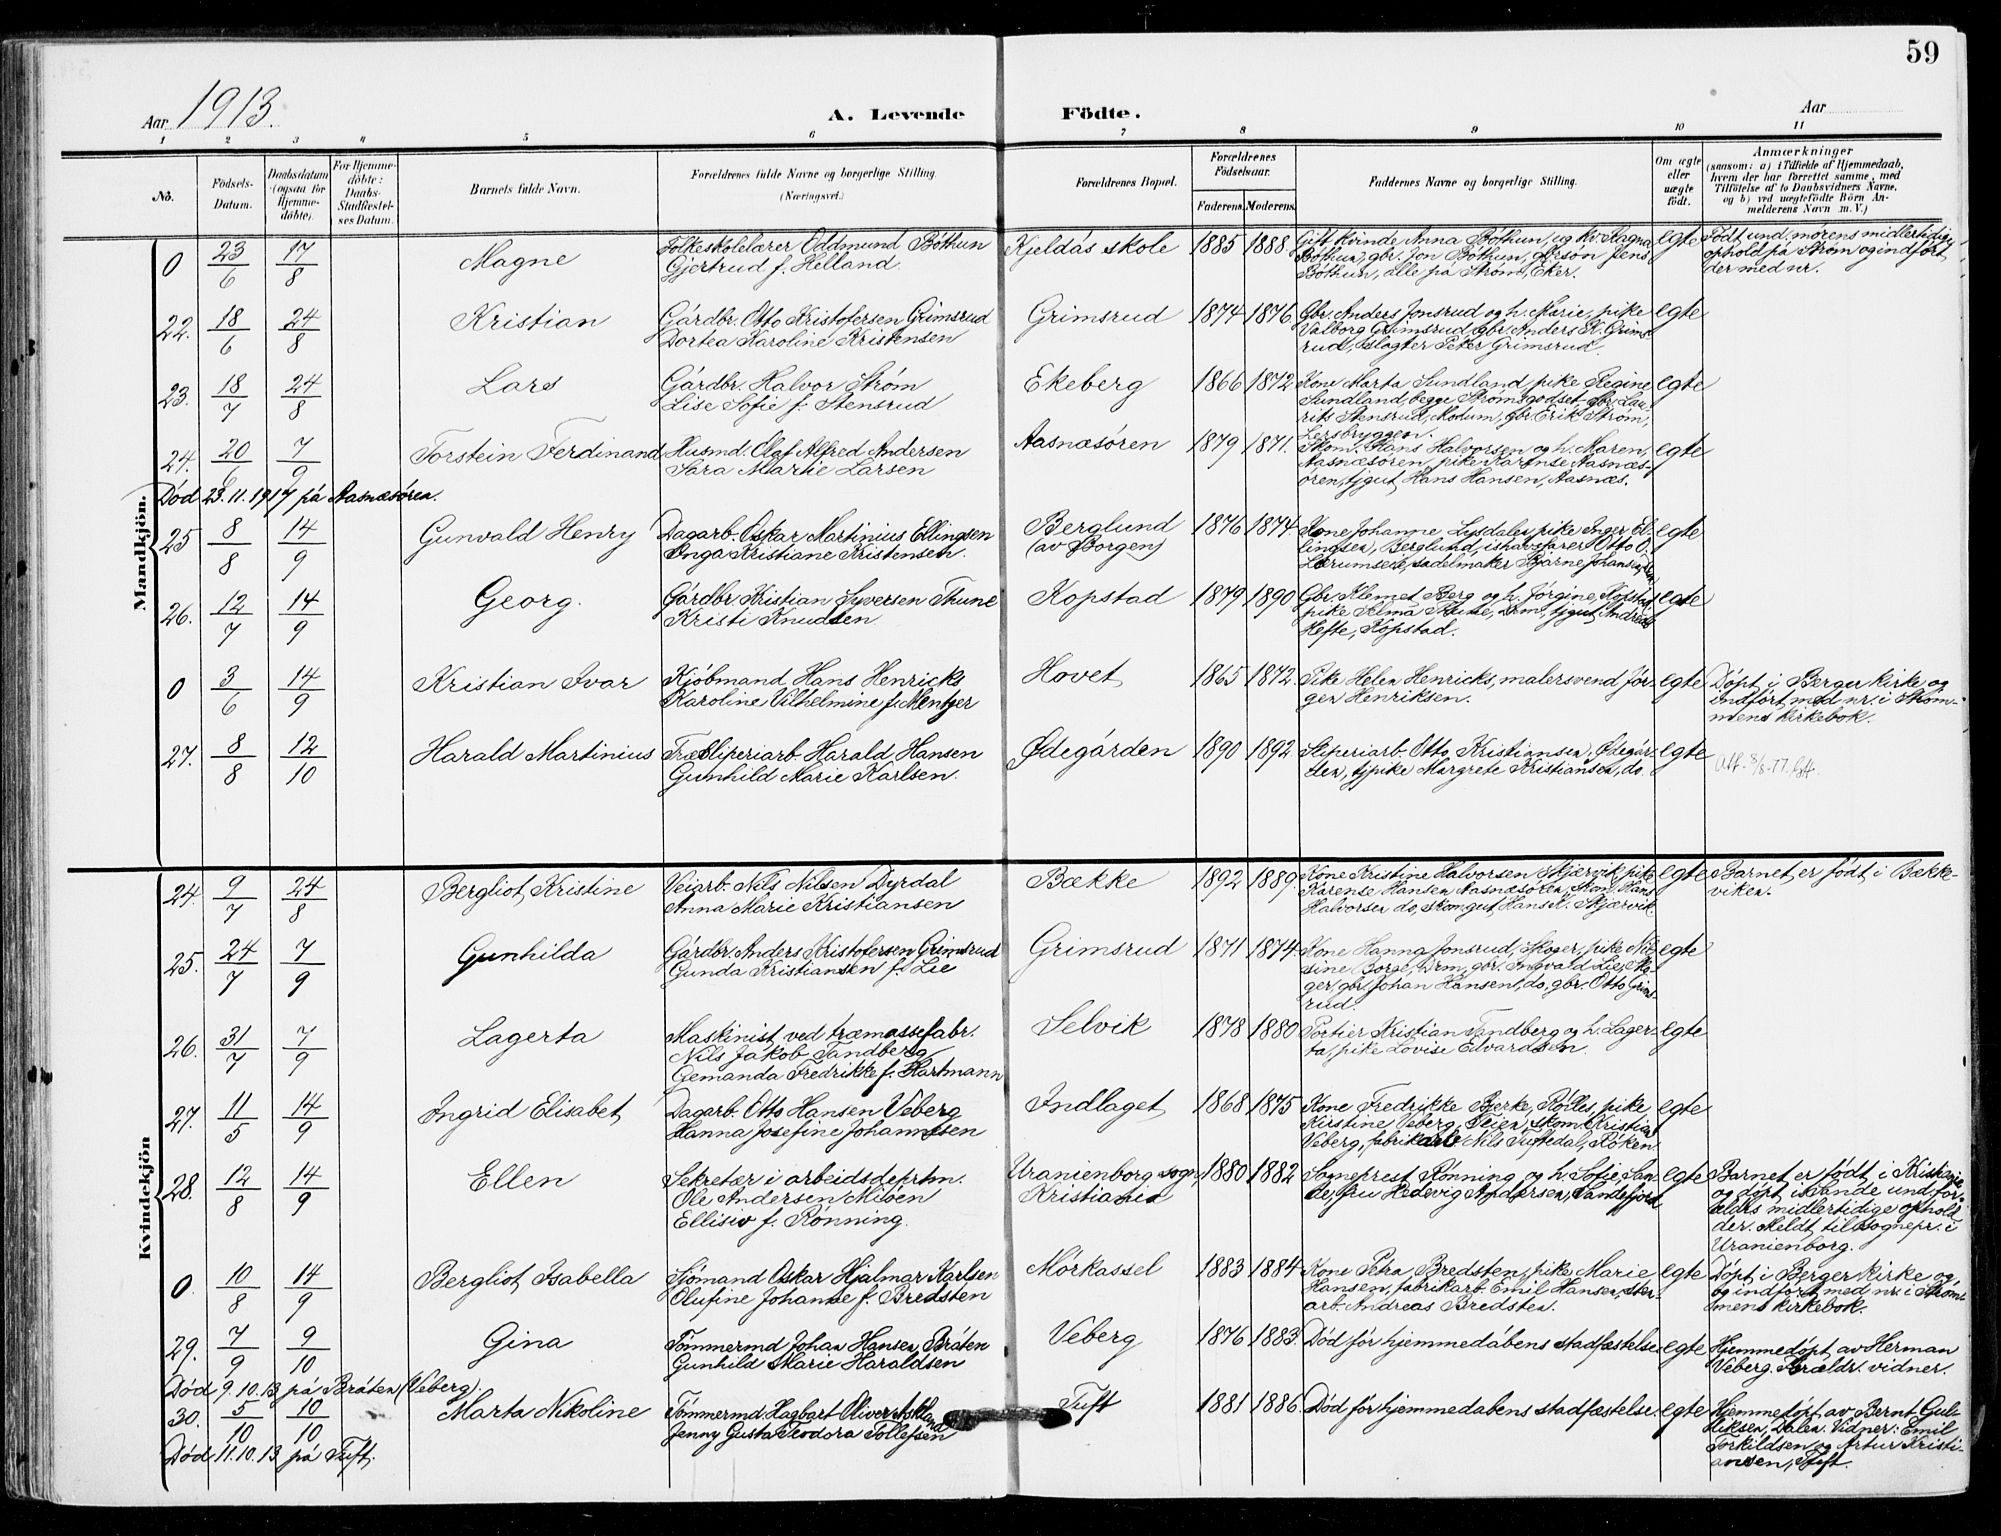 59
Aar 1913.
A. Levende Födte.
Aar
1 2 3 4 5 6 7 8 9 10 11
No.
Födsels-Datum.
Daabsdatum (ogsaa for Hjemme-döbte).
For Hjemme-döbte: Daabs-Stadfæstel-ses Datum.
Barnets fulde Navn.
Forældrenes fulde Navne og borgerlige Stilling. (Næringsvei.)
Forældrenes Bopæl.
Forældrenes Födselsaar.
Faderens. Moderens.
Faddernes Navne og borgerlige Stilling.
Om ægte eller uægte födt.
Anmærkninger
(saasom: a) i Tilfælde af Hjemmedaab, hvem der har forrettet samme, med Tilföielse af to Daabsvidners Navne, og b) ved uægtefödte Börn An-melderens Navn m. V.)
Mandkjön.
0 23/6 17/8 Magne
Folkeskolelærer Oddmund Böthun
Gjertrud f. Helland.
Kjeldås skole 1885 1888
Gift kvinde Anna Böthun, ug. kv. Magna
Böthun, gbr. Jon Böthun, grsøn Jens
Böthun, alle på Strøm, Eker.
egte
Födt und. morens midlertidige
ophold på Strøm og indfört
der med nr.
22. 18/6 24/8 Kristian
Gårdbr. Otto Kristofersen Grimsrud
Dortea Karoline Kristensen
Grimsrud 1874 1876
Gbr. Anders Jonsrud og h. Marie, pike
Valborg Grimsrud, gbr. Anders K. Grims-
rud, slagter Peter Grimsrud.
egte
23. 18/7 24/8 Lars
Gårdbr. Halvor Strøm
Lise Sofie f. Stensrud
Ekeberg 1866 1872
Kone Marta Sundland, pike Regine
Sundland, begge Strømsgodset. Gbr. Lau-
rits Stensrud, Modum, gbr. Erik Strøm,
Lersbryggen.
egte
24. 20/6 7/9 Torstein Ferdinand
Husmd. Olaf Alfred Andersen
Sara Martie Larsen
Aasnæsören 1879 1871.
Skom. Hans Halvorsen og h. Maren,
Aasnæsören, pike Karense Aasnæs-
ören, tjgut Hans Hansen, Aasnæs.
egte
Död 23.11.1917 på Aasnæsören.
25 8/8 14/9 Gunvald Henry
Dagarb. Oskar Martinius Ellingsen
Inga Kristiane Kristensen.
Berglund
(av Borgen)
1876 1874.
Kone Johanne Lysdalen, pike Inger El-
lingsen, Berglund, ishavsfarer Otto O.
Lærumseie, sadelmaker Bjarne Johansen,
egte
26. 12/7 14/9 Georg.
Gårdbr. Kristian Syversen Thune
Kristi Knudsen.
Kopstad 1879 1890
Gbr. Klemet Berg og h. Jörgine, Kopstad,
pike Selma Thune, Drm, tjgut Andreas
Hefte, Kopstad.
egte
0 3/6 14/9 Kristian Ivar
Kjöbmand Hans Henricks
Karoline Vilhelmine f. Mentzer
Hovet 1865 1872.
Pike Helen Henricks, malersvend Jör-
ger Henriksen.
egte
Döpt i Berger kirke og
indfört med nr. i Ström-
mens kirkebok.
27. 8/8 12/10 Harald Martinius
Træsliperiarb. Harald Hansen
Gunhild Marie Karlsen.
Ødegården 1890 1892
Sliperiarb. Otto Kristiansen, Ødegår-
den, tjpike Margrete Kristiansen, do.
egte
Utf. 8/8-77.
Kvindekjön
24. 9/7 24/8 Bergliot Kristine
Veiarb. Nils Nilsen Dyrdal
Anna Marie Kristiansen
Bække 1892 1889.
Kone Kristine Halvorsen Skjærvik, pike
Karense Hansen Aasnæsören, skom. Hans
Halvorsen do, skomgut Hans H. Skjærvik.
egte
Barnet er födt i Bække-
viken.
25. 24/7 7/9 Gunhilda
Gårdbr. Anders Kristofersen Grimsrud
Gunda Kristiansen f. Lie
Grimsrud 1871 1874.
Kone Hanna Jonsrud, Skoger, pike
sine Borge, Drm, gbr. Ingvald Lie, Sko-
ger, gbr. Johan Hansen, do. gbr. Otto Grims-
rud.
egte
26. 31/7 7/9 Lagerta
Maskinist ved træmassefabr.
Nils Jakob Tandberg
Gemanda Fredrikke f. Hartmann
Selvik 1878 1880
Portier Kristian Tandberg og h. Lager-
ta, pike Lovise Edvardsen.
egte
27. 11/5 14/9 Ingrid Elisabet
Dagarb. Otto Hansen Veberg
Hanna Josefine Johannesen
Indlaget 1868 1875
Kone Fredrikke Bjerke, pike
Kirstine Veberg, Teien, skom. Kristian
Veberg, fabrikarb. Nils Tuftedal, Röken
egte
28. 12/8 14/9 Ellen
Sekretær i arbeidsdeprtm.
Ole Andersen Milöen
Ellisiv f. Rönning.
Uranienborg sogn,
Kristiania
1880 1882
Sogneprest Rönning og h. Sofie, San-
de, fru Hedevig Andersen, Sandefjord
egte
Barnet er födt i Kristiania
og döpt i Sande und. for-
ældrs midlertidige ophold
der. Meldt til sognepr. i
Uranienborg.
0. 10/8 14/9 Bergliot Isabella
Sjömand Oskar Hjalmar Karlsen
Olufine Johanne f. Bredsten
Mörkassel 1883 1884
Kone Petra Bredsten, pike Marie
Hansen, fabrikarb. Emil Hansen, sten-
arb. Andreas Bredsten.
egte
Döpt i Berger kirke og
og indfört med nr. i Ström-
mens kirkebok.
29. 7/9 9/10 Gina
Tömmermd Johan Hansen Bråten
Gunhild Marie Haraldsen
Veberg 1876 1883.
Död för hjemmedåbens stadfæstelse.
egte
Hjemmedöpt av Herman
Veberg. Forældr. vidner.
Död 9.10.13 på Bråten (Veberg).
30. 5/10 10/10 Marta Nikoline
Tömmermd Hagbart Oliver Askland
Jenny Gusta Teodora Tollefsen
Tuft 1881 1886.
Död för hjemmedåbens stadfæstelse.
egte
Hjemmedöpt av Bernt Gul-
liksen, Dalen. Vidner: Emil
Torkildsen og Artur Kristi-
ansen, Tuft.
Död 11.10.13 på Tuft.